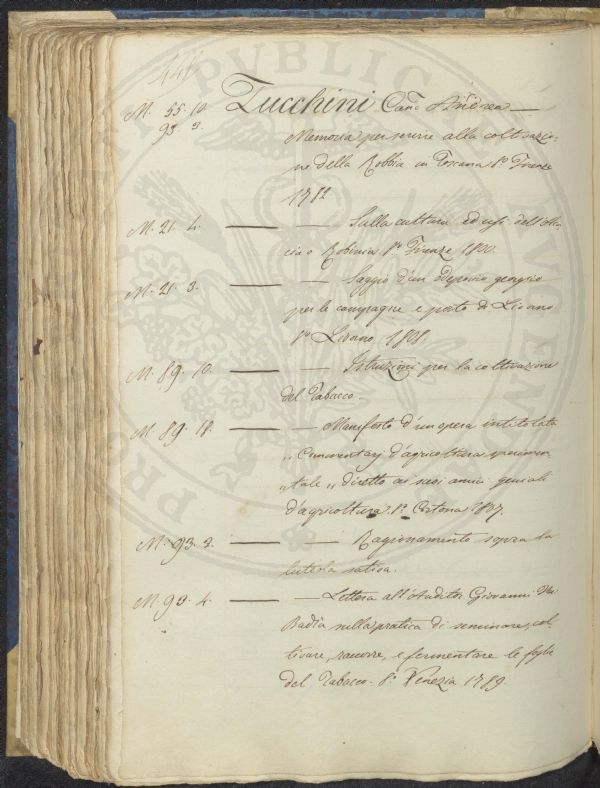 446
M. 55. 10. Zucchini Can.e Andrea
93. 3.
Memoria per servire alla coltivazio-
ne della Robbia in Toscana 8º Firenze
1782
M. 21. 4. Sulla cultura ed usi dell'A-
cia o Robinia 8º Firenze 1800.
M. 21. 3. Saggio d'un deposito georgico
per le campagne e porto di Livorno
8º Livorno 1808.
M. 89. 10. Istruzioni per la coltivazione
del Tabacco.
M. 89. 18. Manifesto d'un opera intitolata
„ Commentarj d'agricoltura sperimen-
„ tale „ diretto ai suoi amici geniali
d'agricoltura 8º Cortona 1807.
M. 93. 2. Ragionamento sopra la
luteola sativa.
M. 93. 4. Lettera all'Auditor Giovanni
Badia nella pratica di seminare, col-
tivare, raccorre, e fermentare le foglie
del Tabacco. 8º Venezia 1789